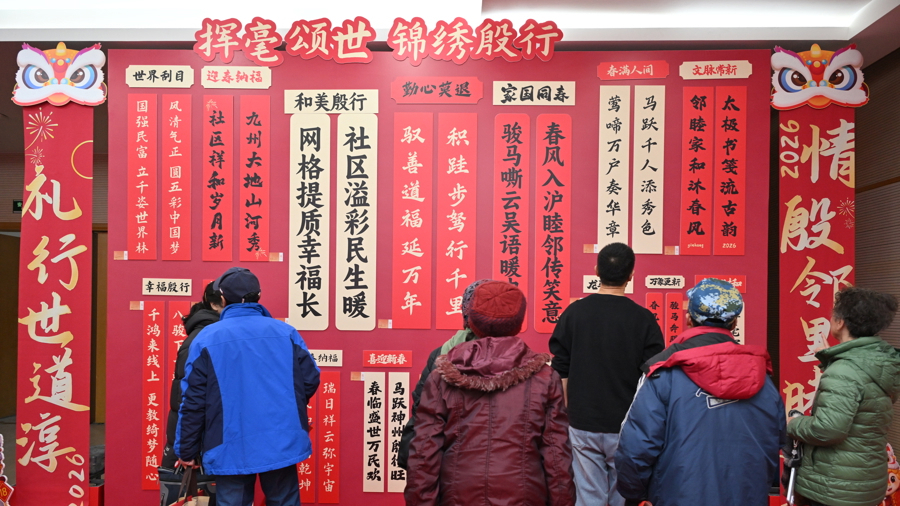 挥毫颂世 锦绣殷行
礼行世道淳
2026
世界刮目
国强民富 立千姿世界林
风清气正 圆五彩中国梦
迎春纳福
社区祥和岁月新
九州大地山河秀
和美殷行
网格提质幸福长
社区溢彩民生暖
勤心爽退
驭善道福延万年
积跬步驽行千里
家国同春
骏马嘶云吴语暖
春风入沪睦邻传笑意
春满人间
莺啼万户奏华章
马跃千人添秀色
文脉常新
邻睦家和沐春风
太极书笺流古韵
2026
幸福殷行
千鸿来线上 更教绮梦随心
八骏
纳福
乾坤
瑞日祥云弥宇宙
喜迎新春
春临盛世万民欢
马跃神州殷行旺
万象更新
2026
情殷邻里